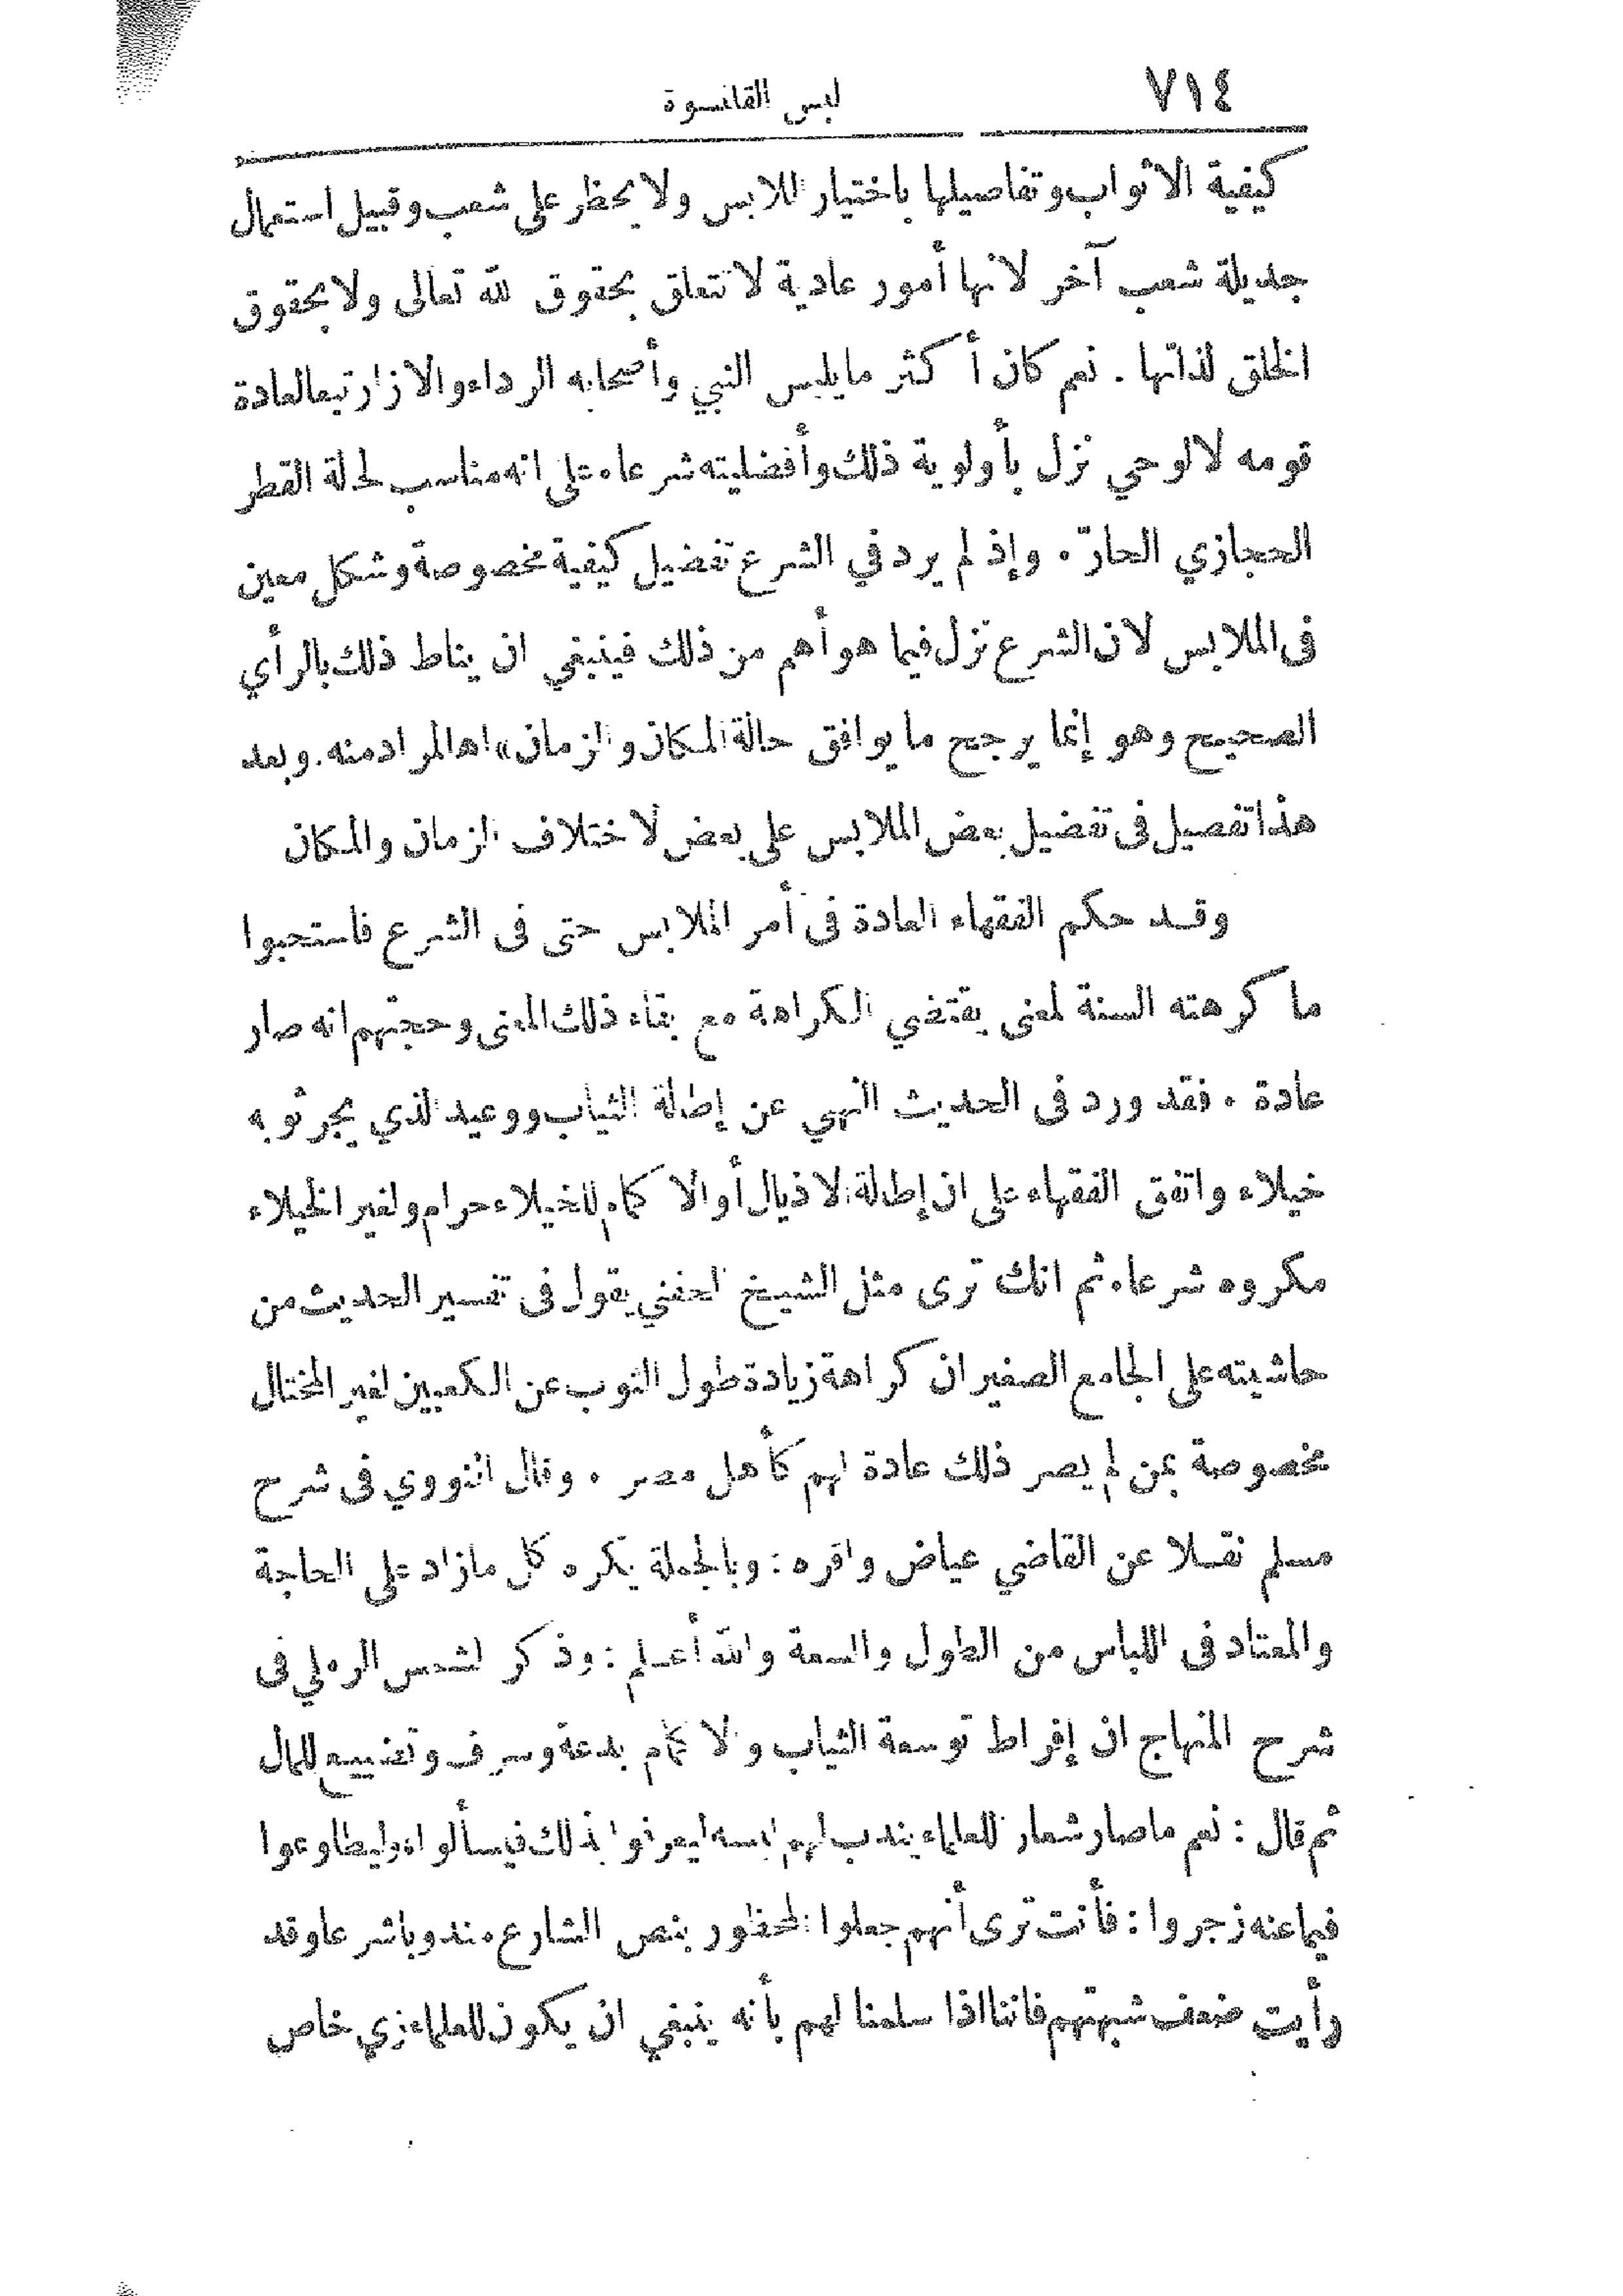 ٧١٤ لبس القلنسوة
كيفية الاثواب وتفاصيلها باختيار اللابس ولا يحظر على شعب وقبيل استعمال
جديلة شعب آخر لانها أمور عادية لا تتعلق بحقوق الله تعالى ولا بحقوق
الخلق لذاتها . نعم كان أكثر ما يلبس النبي وأصحابه الرداء والازار تبعا لعادة
قومه لا لوحي نزل بأولوية ذلك وأفضليته شرعا، على انه مناسب لحالة القطر
الحجازي الحارّ . وإذ لم يرد في الشرع تفضيل كيفية مخصوصة وشكل معين
في الملابس لان الشرع نزل فيما هو أهم من ذلك فينبغي ان يناط ذلك بالرأي
الصحيح وهو إنما يرجح ما يوافق حالة المكان والزمان» اهـ المراد منه . وبعد
هذا تفصيل في تفضيل بعض الملابس على بعض لاختلاف الزمان والمكان
وقد حكم الفقهاء العادة في أمر الملابس حتى في الشرع فاستحبوا
ما كرهته السنة لمعنى يقتضي الكراهة مع بقاء ذلك المعنى وحجتهم انه صار
عادة . فقد ورد في الحديث النهي عن إطالة الثياب ووعيد الذي يجر ثوبه
خيلاء واتفق الفقهاء على ان إطالة الاذيال أو الاكمام للخيلاء حرام ولغير الخيلاء
مكروه شرعا، ثم انك ترى مثل الشيخ الحفني يقول في تفسير الحديث من
حاشيته على الجامع الصغير ان كراهة زيادة طول الثوب عن الكعبين لغير المختال
مخصوصة بمن لم يصر ذلك عادة لهم كأهل مصر . وقال النووي في شرح
مسلم نقلا عن القاضي عياض واقره : وبالجملة يكره كل ما زاد على الحاجة
والمعتاد في اللباس من الطول والسعة والله أعلم : وذكر الشمس الرملي في
شرح المنهاج ان إفراط توسعة الثياب والاكمام بدعة وسرف وتضييع للمال
ثم قال : نعم ما صار شعار للعلماء يندب لهم لبسه ليعرفوا بذلك فيسألوا، وليطاوعوا
فيما عنه زجروا : فأنت ترى أنهم جعلوا المحظور بنص الشارع مندوبا شرعا وقد
رأيت ضعف شبهتهم فاننا اذا سلمنا لهم بأنه ينبغي ان يكون للعلماء زي خاص